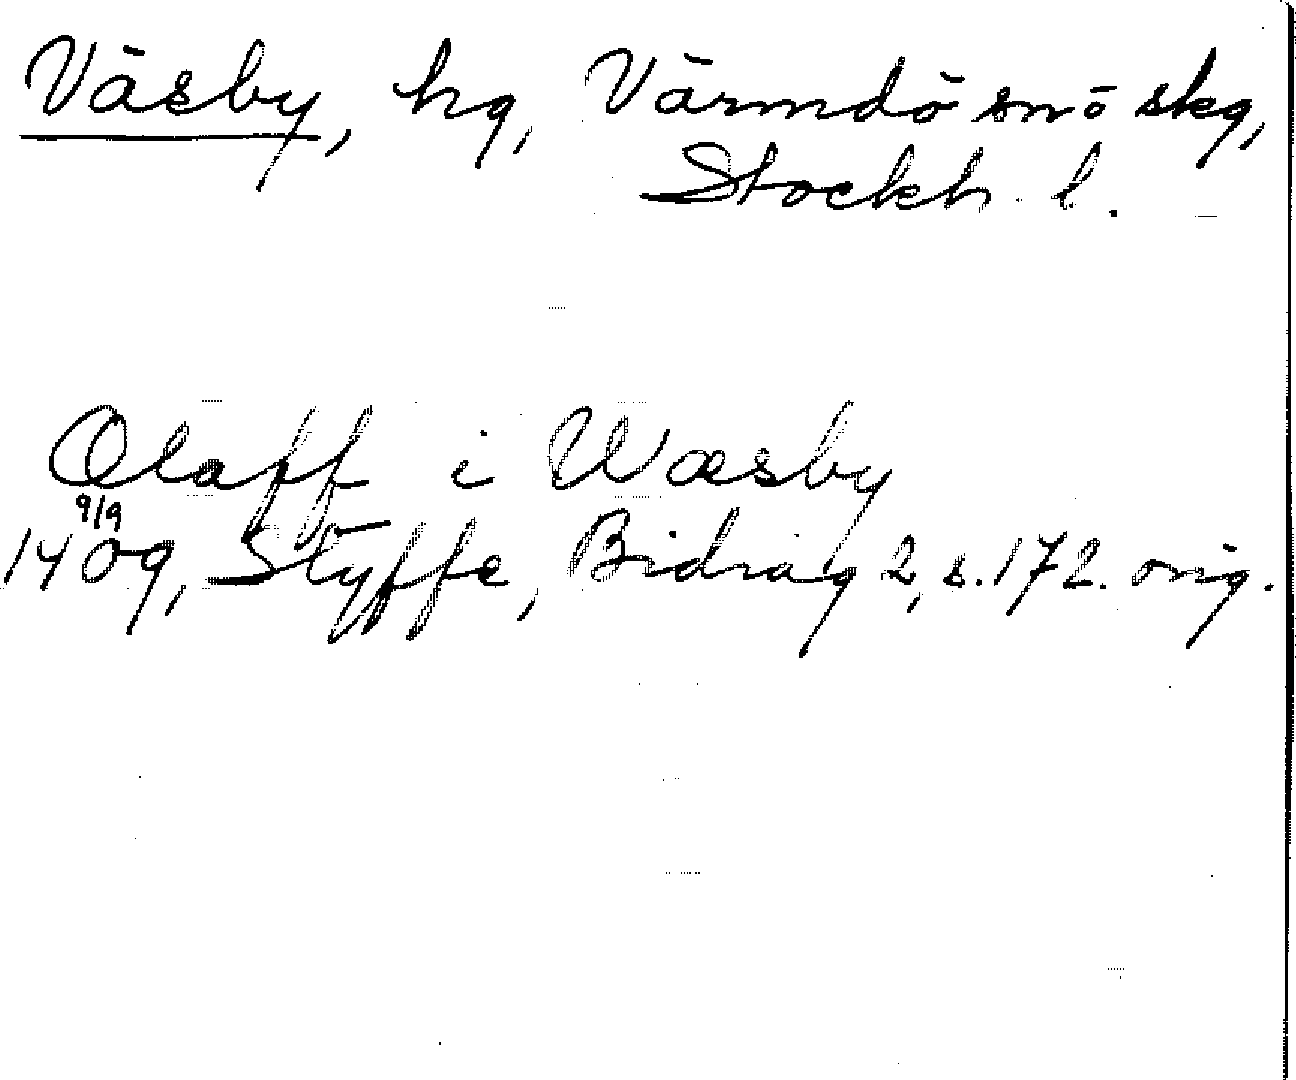 Väsby, hg, Värmdö sn o skg,
Stockh. l.
Olaff i Wæsby
9/9
1409, Styffe, Bidrag 2, s. 172. orig.